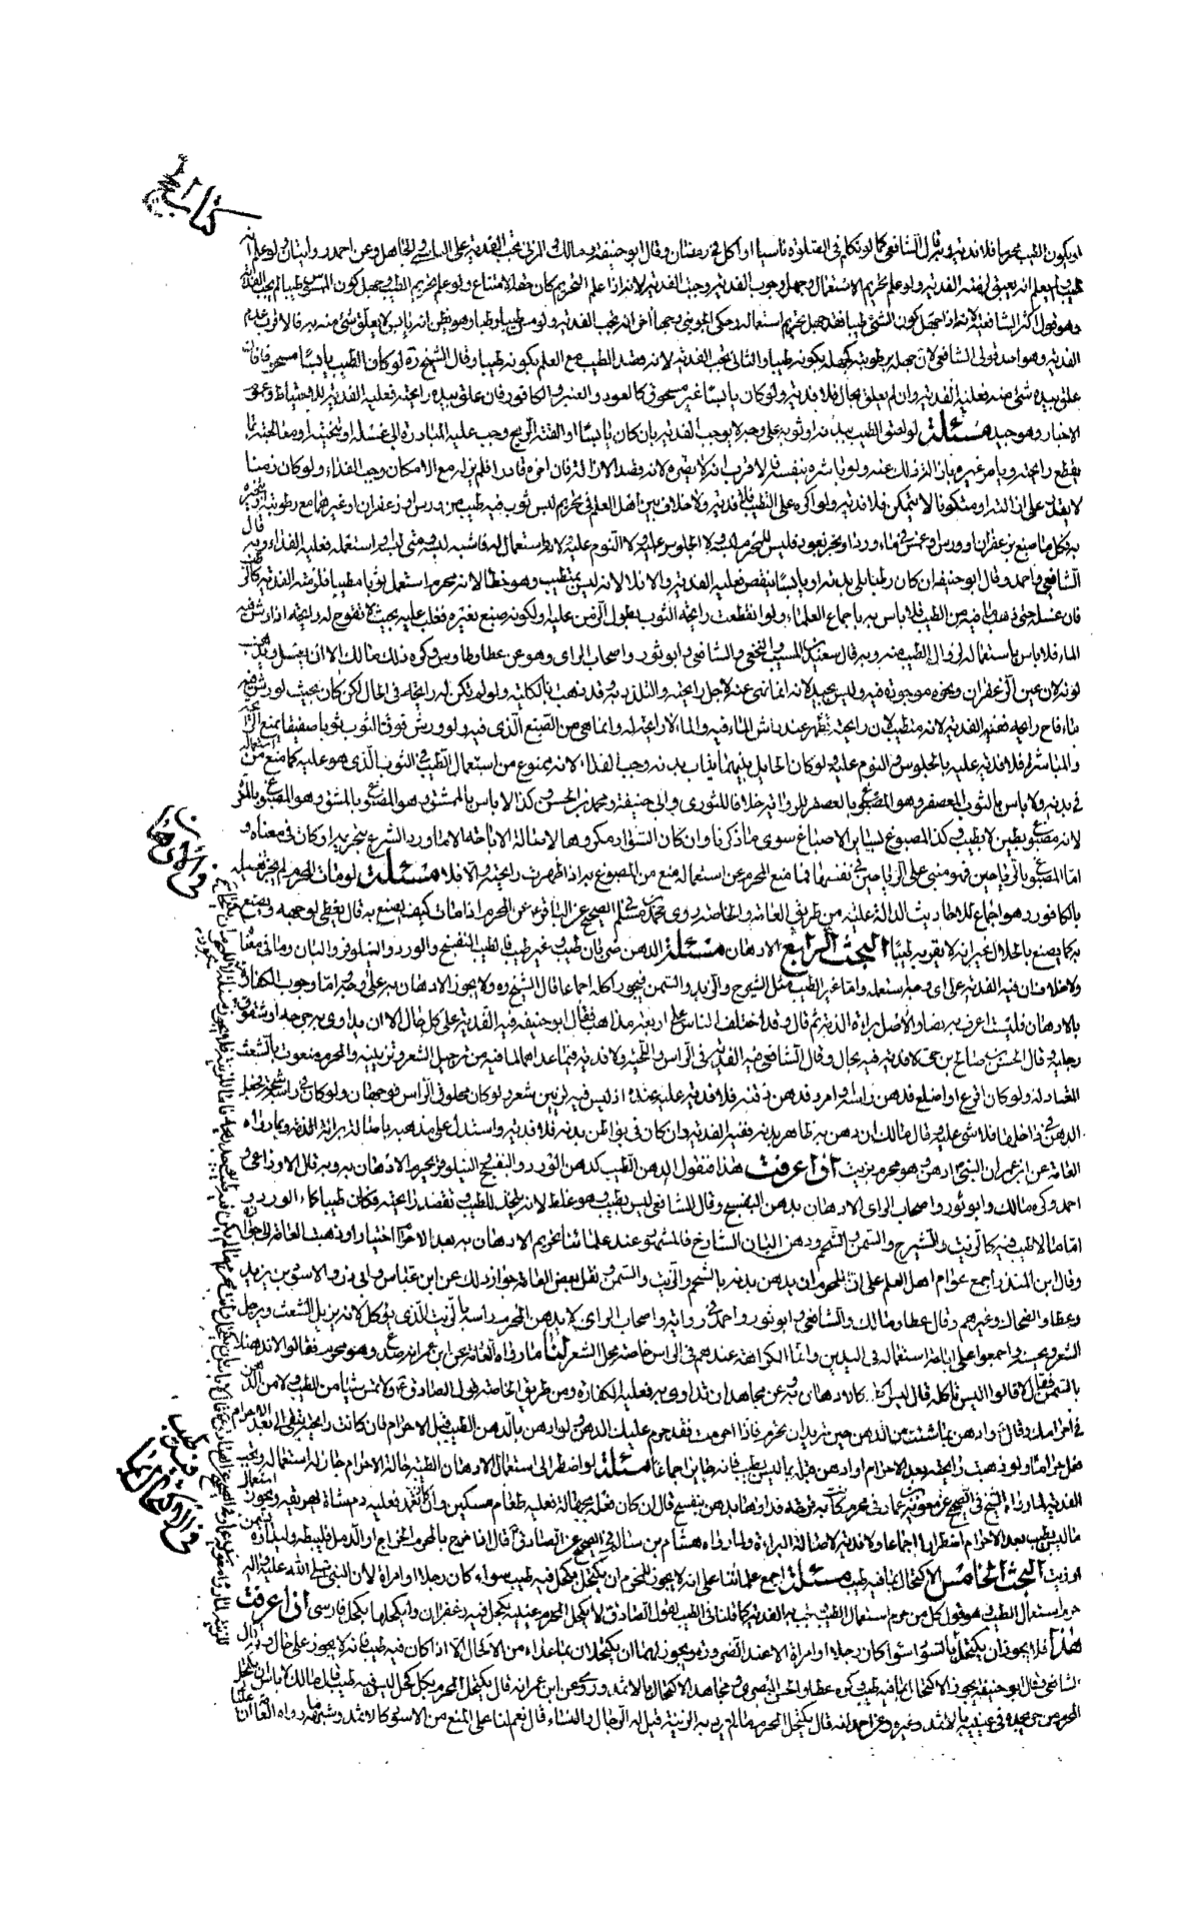 كتاب الحج
او يكون الطيب محرما فلا فدية وبه قال الشافعي كما لو تكلم في الصلوة ناسيا او اكل في رمضان وقال ابو حنيفة ومالك والمزني تجب الفدية على الناسي والجاهل وعن احمد روايتان ولو علم انه
طيب ولم يعلم انه يعبق لزمته الفدية ولو علم تحريم الاستعمال وجهل وجوب الفدية وجبت الفدية لانه اذا علم التحريم كان حقه الامتناع ولو علم تحريم الطيب وجهل كون المس طيبا لم يجب الفدية
وهو قول اكثر الشافعية لانه اذا جهل كون الشئ طيبا فقد جهل تحريم استعماله وحكى الجويني وجها اخر انه تجب الفدية ولو مس طيبا رطبا وهو يظن انه يابس لا يعلق شئ منه به فالاقرب عدم
الفدية وهو احد قولي الشافعي لان جهله برطوبته كجهله بكونه طيبا والثاني تجب الفدية لانه قصد الطيب مع العلم بكونه طيبا وقال الشيخ ره لو كان الطيب يابسا مسحوقا فان
علق بيده شئ منه فعليه الفدية وان لم يعلق بحال فلا فدية ولو كان يابسا غير مسحوق كالعود والعنبر والكافور فان علق بيده رايحته فعليه الفدية للاحتياط وعموم
الاخبار وهو جيد مسئلة لو لصق الطيب ببدنه او ثوبه على وجه لا يوجب الفدية بان كان يابسا او القته الريح وجب عليه المبادرة الى غسله او تنحيته او معالجته بما
يقطع رايحته ويامر غيره بازالة ذلك عنه ولو باشره بنفسه فالاقرب انه لا يضره لانه قصد الازالة فان اخره قادرا فلم يزله مع الامكان وجب الفداء ولو كان زمنا
لا يقدر على ازالته او مكتوفا لا يتمكن فلا فدية ولو اكره على التطيب فلا فدية ولا خلاف بين اهل العلم في تحريم لبس ثوب فيه طيب من ورس او زعفران او غيرهما مع رطوبته او تبخيره
به فكل ما صبغ بزعفران او ورس او غمس في ماء ورد او بخر بعود فليس للمحرم لبسه ولا الجلوس عليه ولا النوم عليه لانه استعمال له فاشبه لبسه ومتى لبسه او استعمله فعليه الفداء وبه قال
الشافعي واحمد وقال ابو حنيفة ان كان رطبا يلي بدنه او يابسا ينفض فعليه الفدية والا فلا لانه ليس بمتطيب وهو خطا لانه محرم استعمل ثوبا مطيبا فلزمته الفدية كالرطب
فان غسله حتى ذهب ما فيه من الطيب فلا باس به باجماع العلماء ولو انقطعت رايحة الثوب بطول الزمن عليه او لكونه صبغ بغيره فغلب عليه بحيث لا تفوح له رايحة اذا رش فيه
الماء فلا باس باستعماله لزوال الطيب منه وبه قال سعيد بن المسيب والنخعي والشافعي وابو ثور واصحاب الراى وهو عن عطا وطاوس وكره ذلك مالك الا ان يغسل ويذهب
لونه لان عين الزعفران ونحوه موجودة فيه وليس بجيد لانه انما نهى عنه لاجل رايحته والتلذذ به وقد ذهب بالكلية ولو لم يكن له رايحة في الحال لكن كان بحيث لو رش فيه
ماء فاح رايحته ففيه الفدية لانه متطيب لان رايحته تظهر عند رش الماء فيه والماء لا رايحة له وانما هي من الصبغ الذي فيه ولو فرش فوق الثوب ثوبا صفيقا يمنع الرايحة
والمباشرة فلا فدية عليه بالجلوس والنوم عليه ولو كان الحايل بينهما ثياب بدنه وجب الفداء لانه ممنوع من استعمال الطيب في الثوب الذي هو عليه كما منع من استعماله
في بدنه ولا باس بالثوب المعصفر وهو المصبوغ بالعصفر للرواية خلافا للثوري وابي حنيفة ومحمد بن الحسن وكذا لا باس بالممشق وهو المصبوغ بالمشق وهو المصبوغ بالمغرة
لانه مصبوغ بطين لا بطيب وكذا المصبوغ لسائر الاصباغ سوى ما ذكرناه وان كان السواد مكروها لاصالة الاباحة الا ما ورد الشرع بتحريمه او كان في معناه و
اما المصبوغ بالرياحين فهو مبني على الرياحين في نفسها فما منع المحرم عن استعماله منع من المصبوغ به اذا ظهرت رايحته والا فلا مسئلة لو مات المحرم لم يجز تغسيله
بالكافور وهو اجماع للاحاديث الدالة عليه من طريق العامة والخاصة روى محمد بن مسلم في الصحيح عن الباقر ع عن المحرم اذا مات كيف يصنع به قال يغطى وجهه ويصنع
به كما يصنع بالحلال غير انه لا يقربه طيبا البحث الرابع الادهان مسئلة الدهن ضربان طيب وغير طيب فالطيب كالبنفسج والورد والنيلوفر والبان وما في معناها
ولا خلاف ان فيه الفدية على اي وجه استعمله واما غير الطيب مثل الشيرج والزيت والسمن فيجوز اكله اجماعا قال الشيخ ره ولا يجوز الادهان به على وجه اما وجوب الكفارة
بالادهان فلست اعرف به نصا والاصل براءة الذمة ثم قال وقد اختلف الناس على اربعة مذاهب فقال ابو حنيفة فيه الفدية على كل حال الا ان يداوي به جرحه او شقوق
رجليه وقال الحسن بن صالح بن حي لا فدية فيه بحال وقال الشافعي فيه الفدية في الراس واللحية ولا فدية فيما عداهما لما فيه من ترجيل الشعر وتزيينه والمحرم منعوت بالشعث
المضاد له ولو كان اقرع او اصلع فدهن راسه او امرد فدهن ذقنه فلا فدية عليه عنده اذ ليس فيه تزيين شعر ولو كان محلوق الراس فوجهان ولو كان في راسه شجة فجعل
الدهن في داخلها فلا شئ عليه وقال مالك ان دهن به ظاهر بدنه ففيه الفدية وان كان في بواطن بدنه فلا فدية واستدل على مذهبه باصالة براءة الذمة وبما رواه
العامة عن ابن عمر ان النبي ص ادهن وهو محرم بزيت اذا عرفت هذا فنقول الدهن الطيب كدهن الورد والبنفسج والنيلوفر يحرم الادهان به وبه قال الاوزاعي و
احمد وكره مالك وابو ثور واصحاب الراى الادهان بدهن البنفسج وقال الشافعي ليس بطيب وهو غلط لانه يتخذ للطيب وتقصد رايحته فكان طيبا كماء الورد و
اما ما لا طيب فيه كالزيت والشيرج والسمن والشحم ودهن البان الساذج فالمشهور عند علمائنا تحريم الادهان به بعد الاحرام اختيارا وذهبت العامة الى جوازه
وقال ابن المنذر اجمع عوام اهل العلم على ان للمحرم ان يدهن بدنه بالشحم والزيت والسمن ونقل بعض العامة جواز ذلك عن ابن عباس وابي ذر والاسود بن يزيد
وعطا والضحاك وغيرهم وقال عطا ومالك والشافعي وابو ثور واحمد في رواية واصحاب الراى لا يدهن المحرم راسه بالزيت الذي يؤكل لانه يزيل الشعث ويرجل
الشعر ويحسنه واجمعوا على اباحة استعماله في اليدين وانما الكراهة عندهم في الراس خاصة محل الشعر لنا ما رواه العامة عن ابن عمر انه صدع وهو محرم فقالوا الا ندهنك
بالسمن فقال لا قالوا اليس تاكله قال ليس اكله كالادهان به وعن مجاهد ان تداوى به فعليه الكفارة ومن طريق الخاصة قول الصادق ع ولا تمس شيئا من الطيب ولا من الدهن
في احرامك وقال ع وادهن بما شئت من الدهن حين تريد ان تحرم فاذا احرمت فقد حرم عليك الدهن ولو ادهن بالدهن الطيب قبل الاحرام فان كانت رايحته تبقى الى بعد الاحرام
فعل حراما ولو ذهبت رايحته بعد الاحرام او ادهن قبله بما ليس بطيب فانه جايز اجماعا مسئلة لو اضطر الى استعمال الادهان الطيبة حالة الاحرام جاز له استعماله وتجب
الفدية لما رواه الشيخ في الصحيح عن معوية بن عمار في محرم كانت به قرحة فداواها بدهن بنفسج قال ان كان فعله بجهالة فعليه طعام مسكين وان كان تعمد فعليه دم شاة يهريقه ويجوز استعمال
ما ليس بطيب بعد الاحرام اضطرارا اجماعا ولا فدية لاصالة البراءة ولما رواه هشام بن سالم في الصحيح عن الصادق ع قال اذا خرج بالمحرم الخراج او الدمل فليبطه وليداوه بسمن
او زيت البحث الخامس الاكتحال بما فيه طيب مسئلة اجمع علمائنا على انه لا يجوز للمحرم ان يكتحل بكحل فيه طيب سواء كان رجلا او امراة لان النبي صلى الله عليه واله
حرم استعمال الطيب وهو قول كل من حرم استعمال الطيب وتجب به الفدية كما قلنا في الطيب لقول الصادق ع لا يكحل المحرم عينيه بكحل فيه زعفران وليكحلها بكحل فارسي اذا عرفت
هذا فلا يجوز ان يكتحل بالسواد سواء كان رجلا او امراة الا عند الضرورة ويجوز لهما ان يكتحلا بما عداه من الاكحال الا اذا كان فيه طيب فانه لا يجوز على حال وبه قال
الشافعي وقال ابو حنيفة يجوز الاكتحال بما فيه طيب وكره عطا والحسن البصري ومجاهد الاكتحال بالاثمد وروي عن ابن عمر انه قال يكتحل المحرم بكل كحل ليس فيه طيب قال مالك لا باس ان يكتحل
المحرم من حر يجده في عينيه بالاثمد وغيره وعن احمد انه قال يكتحل المحرم ما لم يرد به الزينة قيل له الرجال والنساء قال نعم لنا على المنع من الاسود كالاثمد وشبهه ما رواه العامة ان عليا
في الادهان
في الاكتحال بما فيه طيب